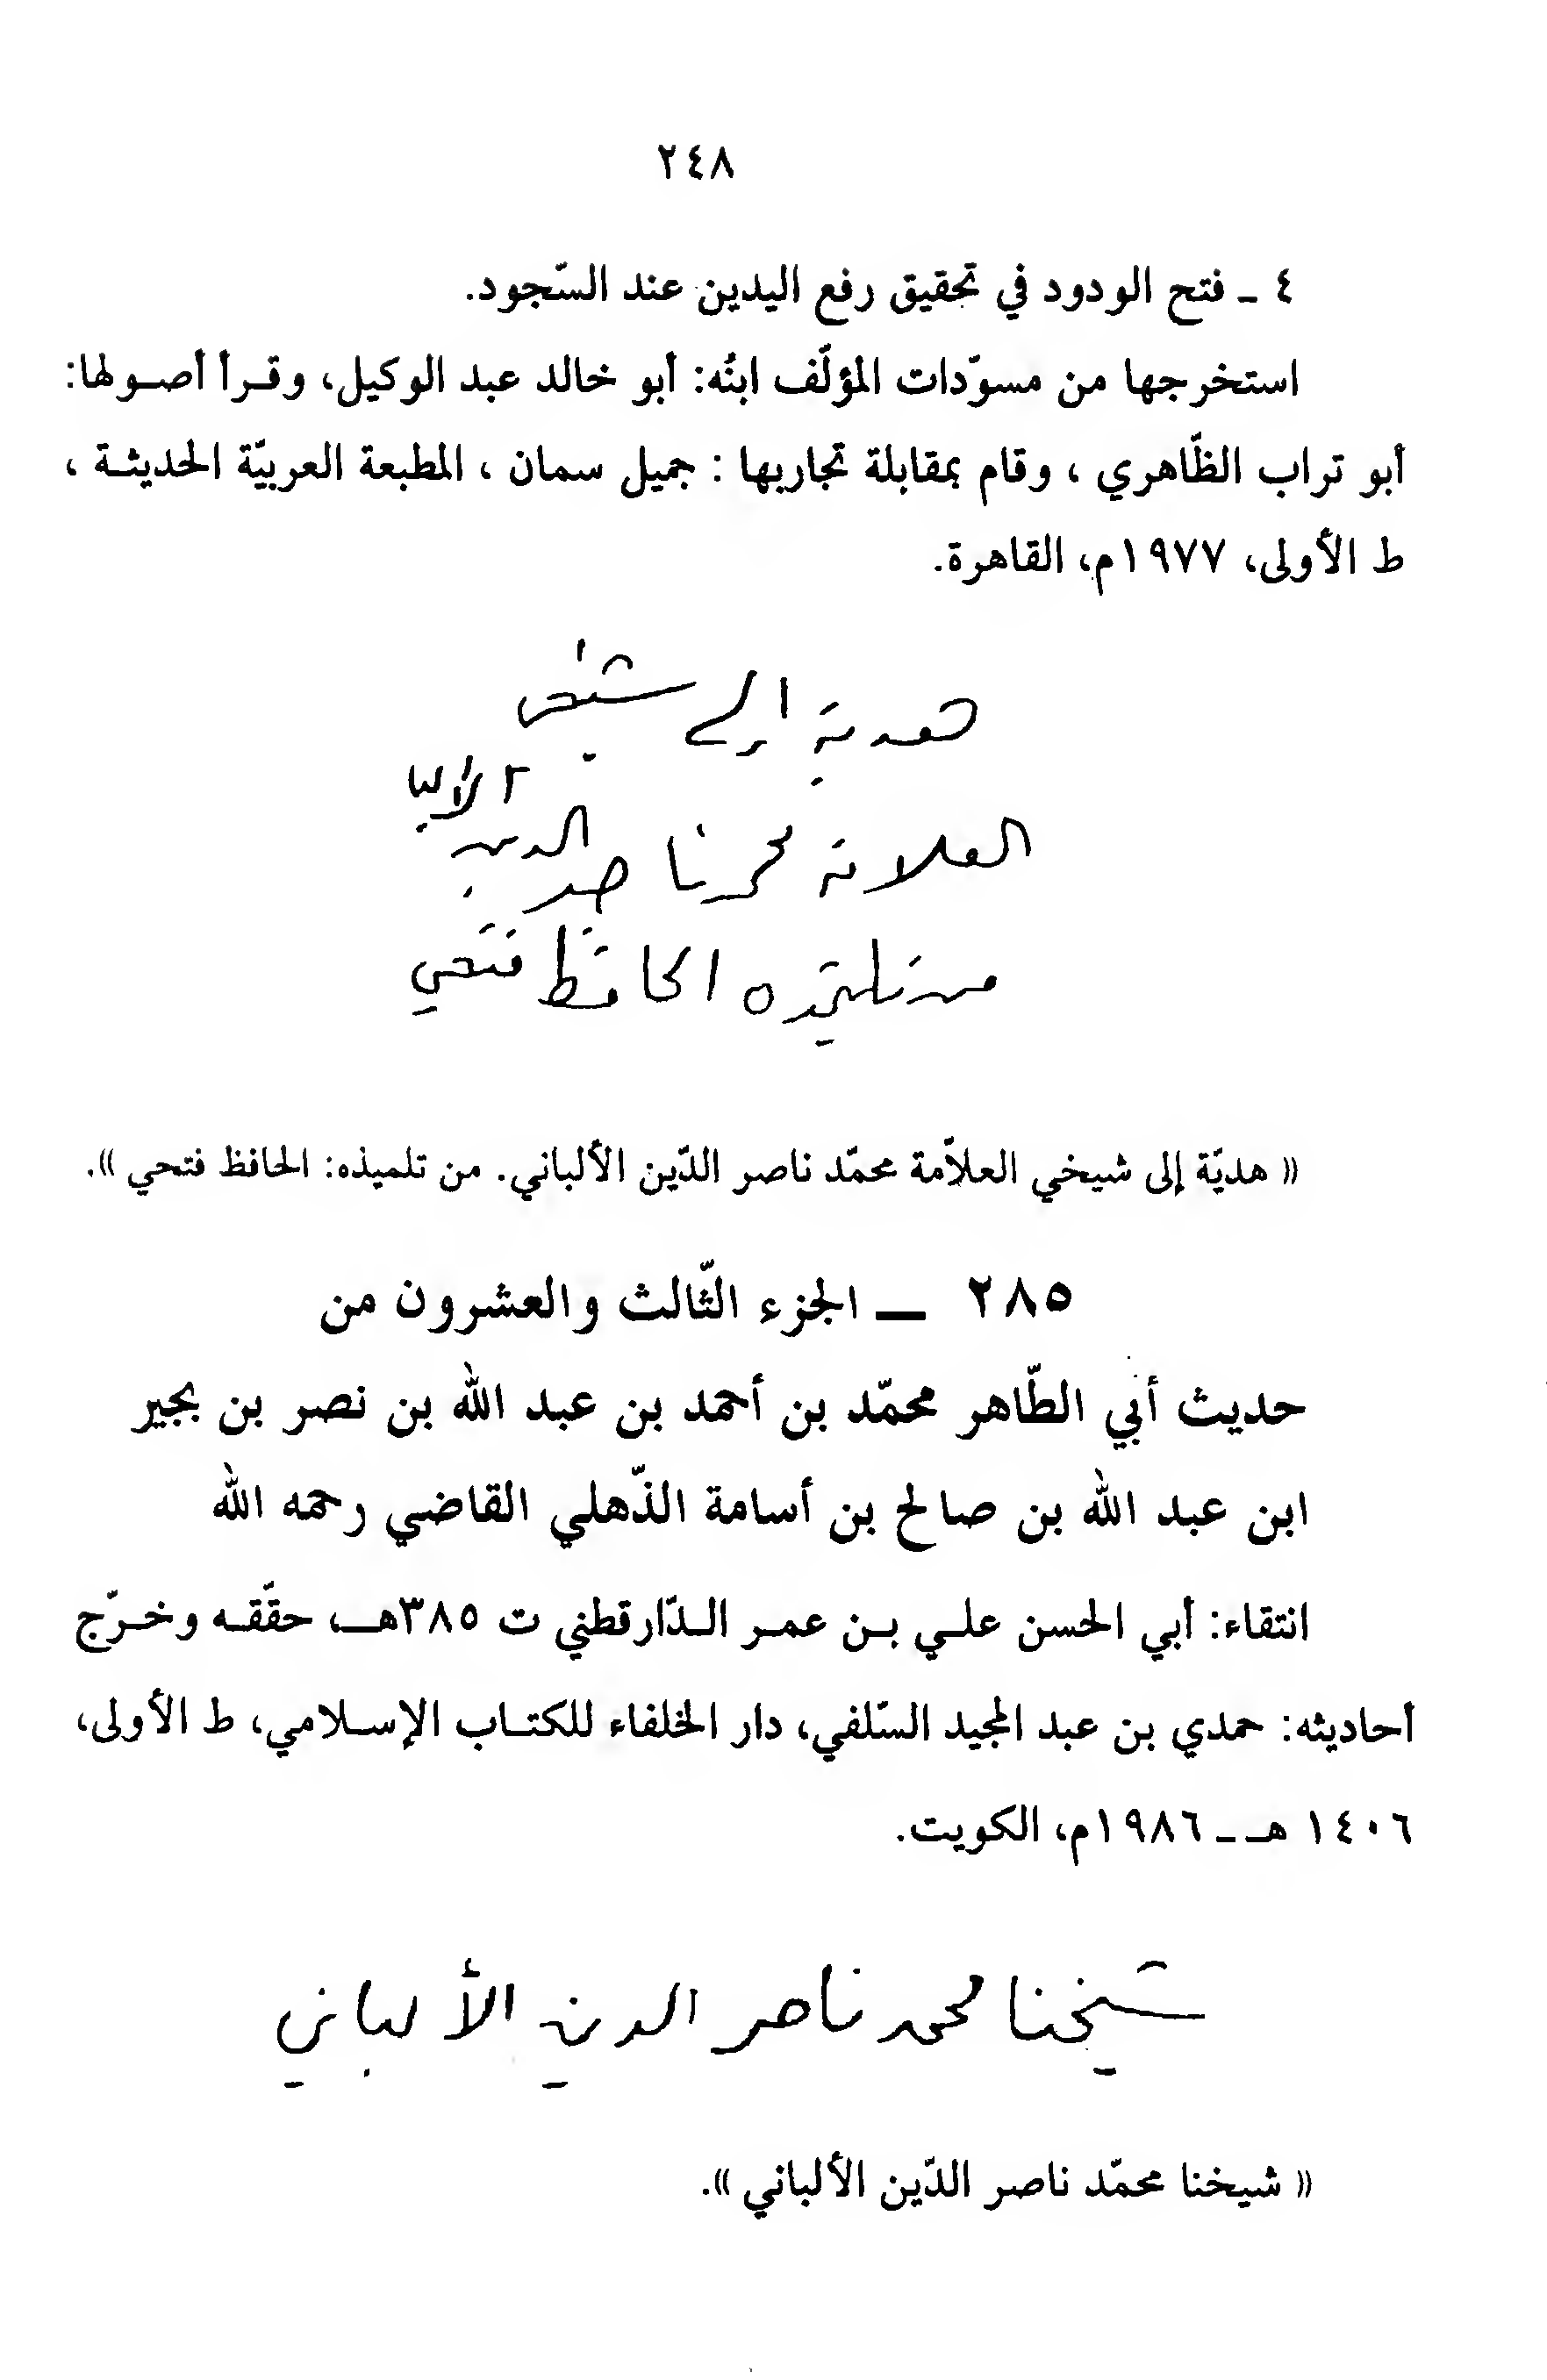 ٢٤٨
٤ ـ فتح الودود في تحقيق رفع اليدين عند السّجود.
استخرجها من مسوّدات المؤلّف ابنُه: أبو خالد عبد الوكيل، وقرأ أصولها:
أبو تراب الظّاهري ، وقام بمقابلة تجاربها : جميل سمان ، المطبعة العربيّة الحديثة ،
ط الأولى، ١٩٧٧م، القاهرة.
هدية إلى شيخي
العلامة محمد ناصر الدين الألباني
من تلميذه الحافظ فتحي
« هديّة إلى شيخي العلاّمة محمّد ناصر الدّين الألباني. من تلميذه: الحافظ فتحي ».
٢٨٥ ـ الجزء الثّالث والعشرون من
حديث أبي الطّاهر محمّد بن أحمد بن عبد الله بن نصر بن بجير
ابن عبد الله بن صالح بن أسامة الذّهلي القاضي رحمه الله
انتقاء: أبي الحسن علي بن عمر الدّارقطني ت ٣٨٥هـ، حقّقه وخرّج
أحاديثه: حمدي بن عبد المجيد السّلفي، دار الخلفاء للكتاب الإسلامي، ط الأولى،
١٤٠٦ هـ ـ ١٩٨٦م، الكويت.
شيخنا محمد ناصر الدين الألباني
« شيخنا محمّد ناصر الدّين الألباني ».